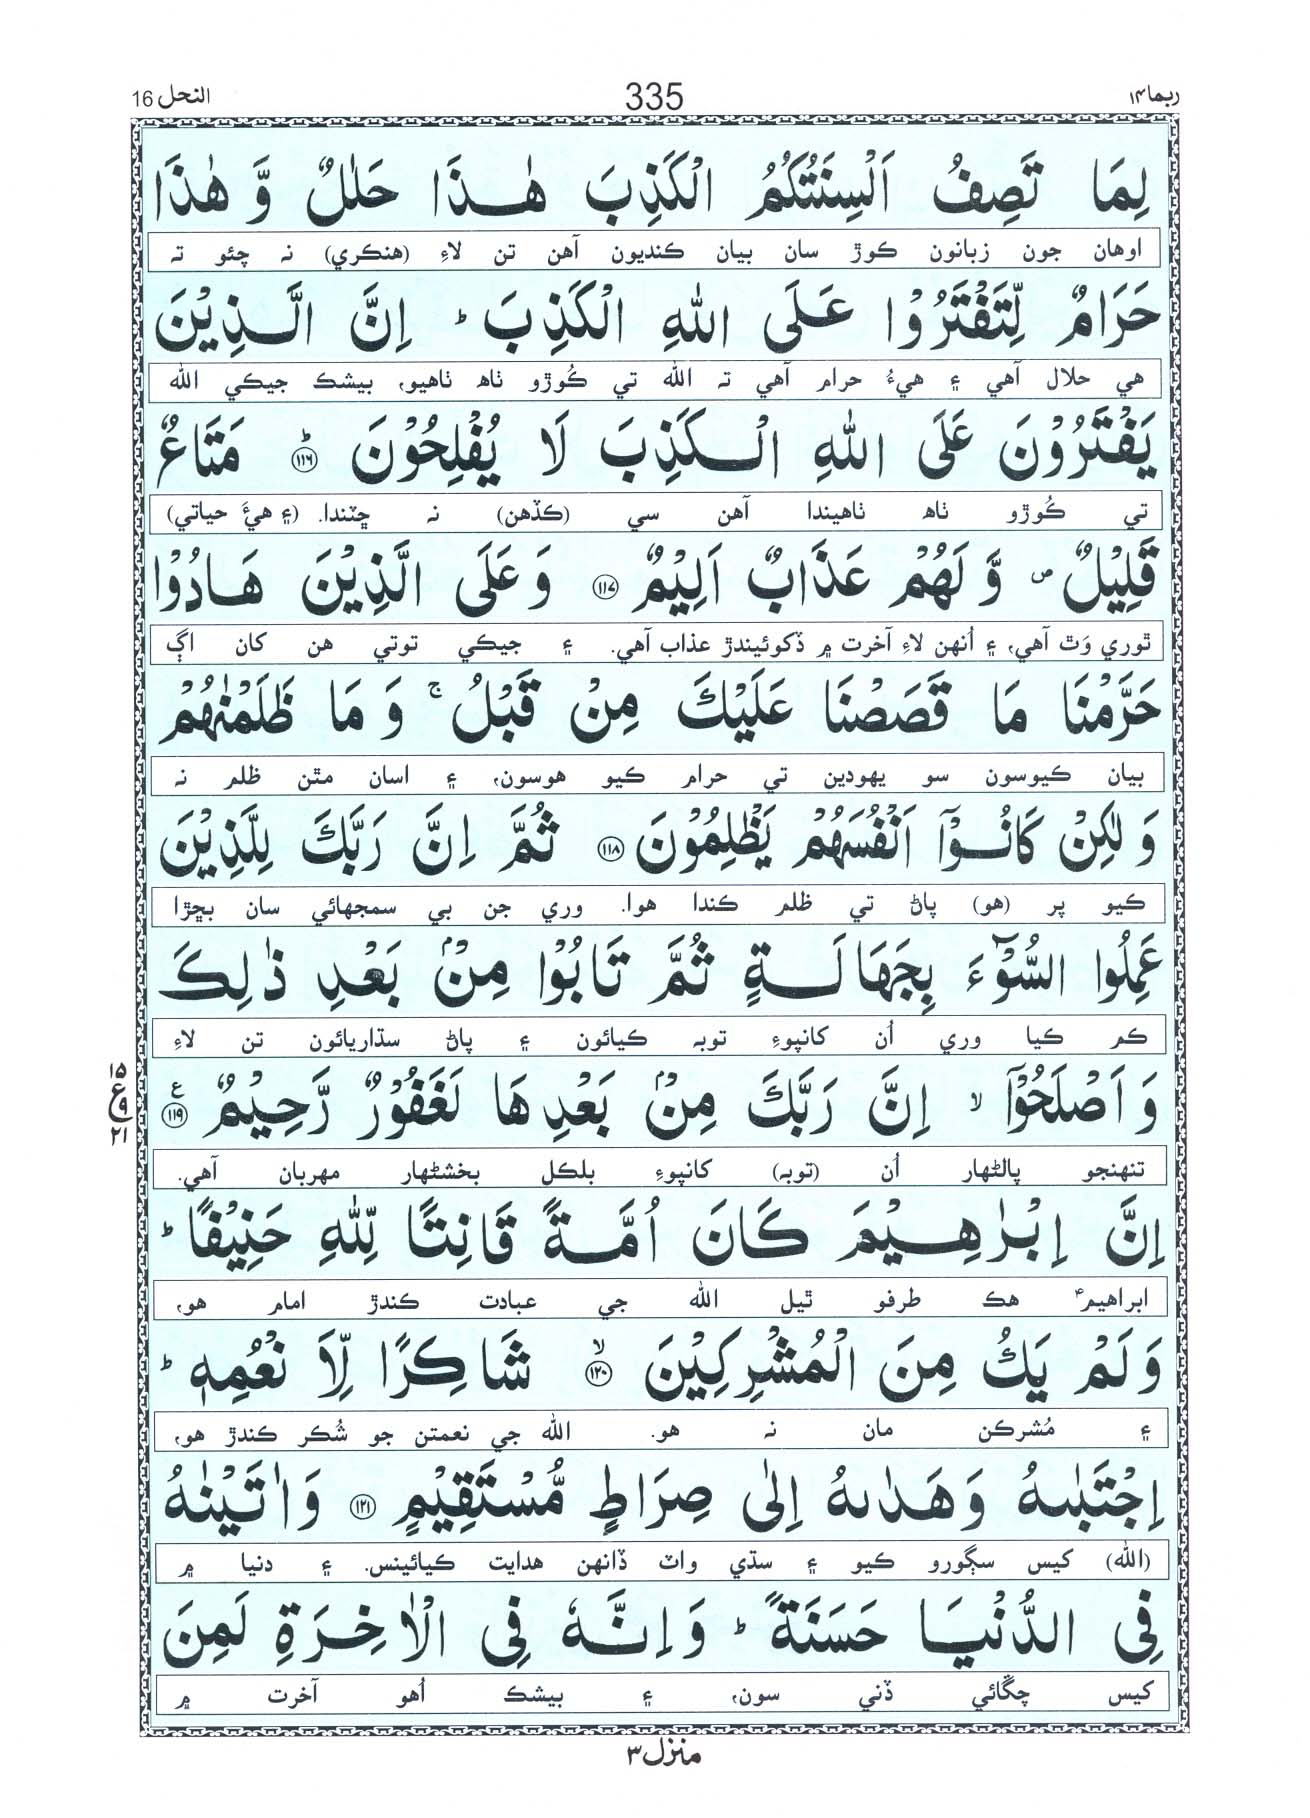 ربما ۱۴ 335 النحل 16
لِمَا تَصِفُ اَلْسِنَتُكُمُ الْكَذِبَ هٰذَا حَلٰلٌ وَّ هٰذَا
اوهان جون زبانون ڪوڙ سان بيان ڪنديون آهن تن لاءِ (هنڪري) نہ چئو تہ
حَرَامٌ لِّتَفْتَرُوْا عَلَى اللّٰهِ الْكَذِبَ ؕ اِنَّ الَّذِيْنَ
هي حلال آهي ۽ هيءُ حرام آهي تہ الله تي ڪُوڙو ٺاھ ٺاهيو، بيشڪ جيڪي الله
يَفْتَرُوْنَ عَلَى اللّٰهِ الْكَذِبَ لَا يُفْلِحُوْنَ ؕ ۱۱۶ مَتَاعٌ
تي ڪُوڙو ٺاھ ٺاهيندا آهن سي (ڪڏهن) نہ ڇٽندا. (۽ هيءَ حياتي)
قَلِيْلٌ ۪ وَّ لَهُمْ عَذَابٌ اَلِيْمٌ ۱۱۷ وَ عَلَى الَّذِيْنَ هَادُوْا
ٿوري وَٿ آهي، ۽ اُنهن لاءِ آخرت ۾ ڏکوئيندڙ عذاب آهي. ۽ جيڪي توتي هن کان اڳ
حَرَّمْنَا مَا قَصَصْنَا عَلَيْكَ مِنْ قَبْلُ ۚ وَ مَا ظَلَمْنٰهُمْ
بيان ڪيوسون سو يهودين تي حرام ڪيو هوسون، ۽ اسان مٿن ظلم نہ
وَ لٰكِنْ كَانُوْۤا اَنْفُسَهُمْ يَظْلِمُوْنَ ۱۱۸ ثُمَّ اِنَّ رَبَّكَ لِلَّذِيْنَ
ڪيو پر (هو) پاڻ تي ظلم ڪندا هوا. وري جن بي سمجهائي سان بڇڙا
عَمِلُوا السُّوْٓءَ بِجَهَالَةٍ ثُمَّ تَابُوْا مِنْۢ بَعْدِ ذٰلِكَ
ڪم ڪيا وري اُن کانپوءِ توبہ ڪيائون ۽ پاڻ سڌاريائون تن لاءِ
وَ اَصْلَحُوْۤا ۙ اِنَّ رَبَّكَ مِنْۢ بَعْدِ هَا لَغَفُوْرٌ رَّحِيْمٌ ع ۱۱۹
۱۵ ع ۹ ۲۱
تنهنجو پالڻهار اُن (توبہ) کانپوءِ بلڪل بخشڻهار مهربان آهي.
اِنَّ اِبْرٰهِيْمَ كَانَ اُمَّةً قَانِتًا لِّلّٰهِ حَنِيْفًا ؕ
ابراهيمؑ هڪ طرفو ٿيل الله جي عبادت ڪندڙ امام هو،
وَ لَمْ يَكُ مِنَ الْمُشْرِكِيْنَ ۙ ۱۲۰ شَاكِرًا لِّاَ نْعُمِهٖ ؕ
۽ مُشرڪن مان نہ هو. الله جي نعمتن جو شُڪر ڪندڙ هو،
اِجْتَبٰىهُ وَ هَدٰىهُ اِلٰى صِرَاطٍ مُّسْتَقِيْمٍ ۱۲۱ وَ اٰتَيْنٰهُ
(الله) کيس سڳورو ڪيو ۽ سڌي واٽ ڏانهن هدايت ڪيائينس. ۽ دنيا ۾
فِى الدُّنْيَا حَسَنَةً ؕ وَ اِنَّهٗ فِى الْاٰخِرَةِ لَمِنَ
کيس چڱائي ڏني سون، ۽ بيشڪ اُهو آخرت ۾
منزل ۳